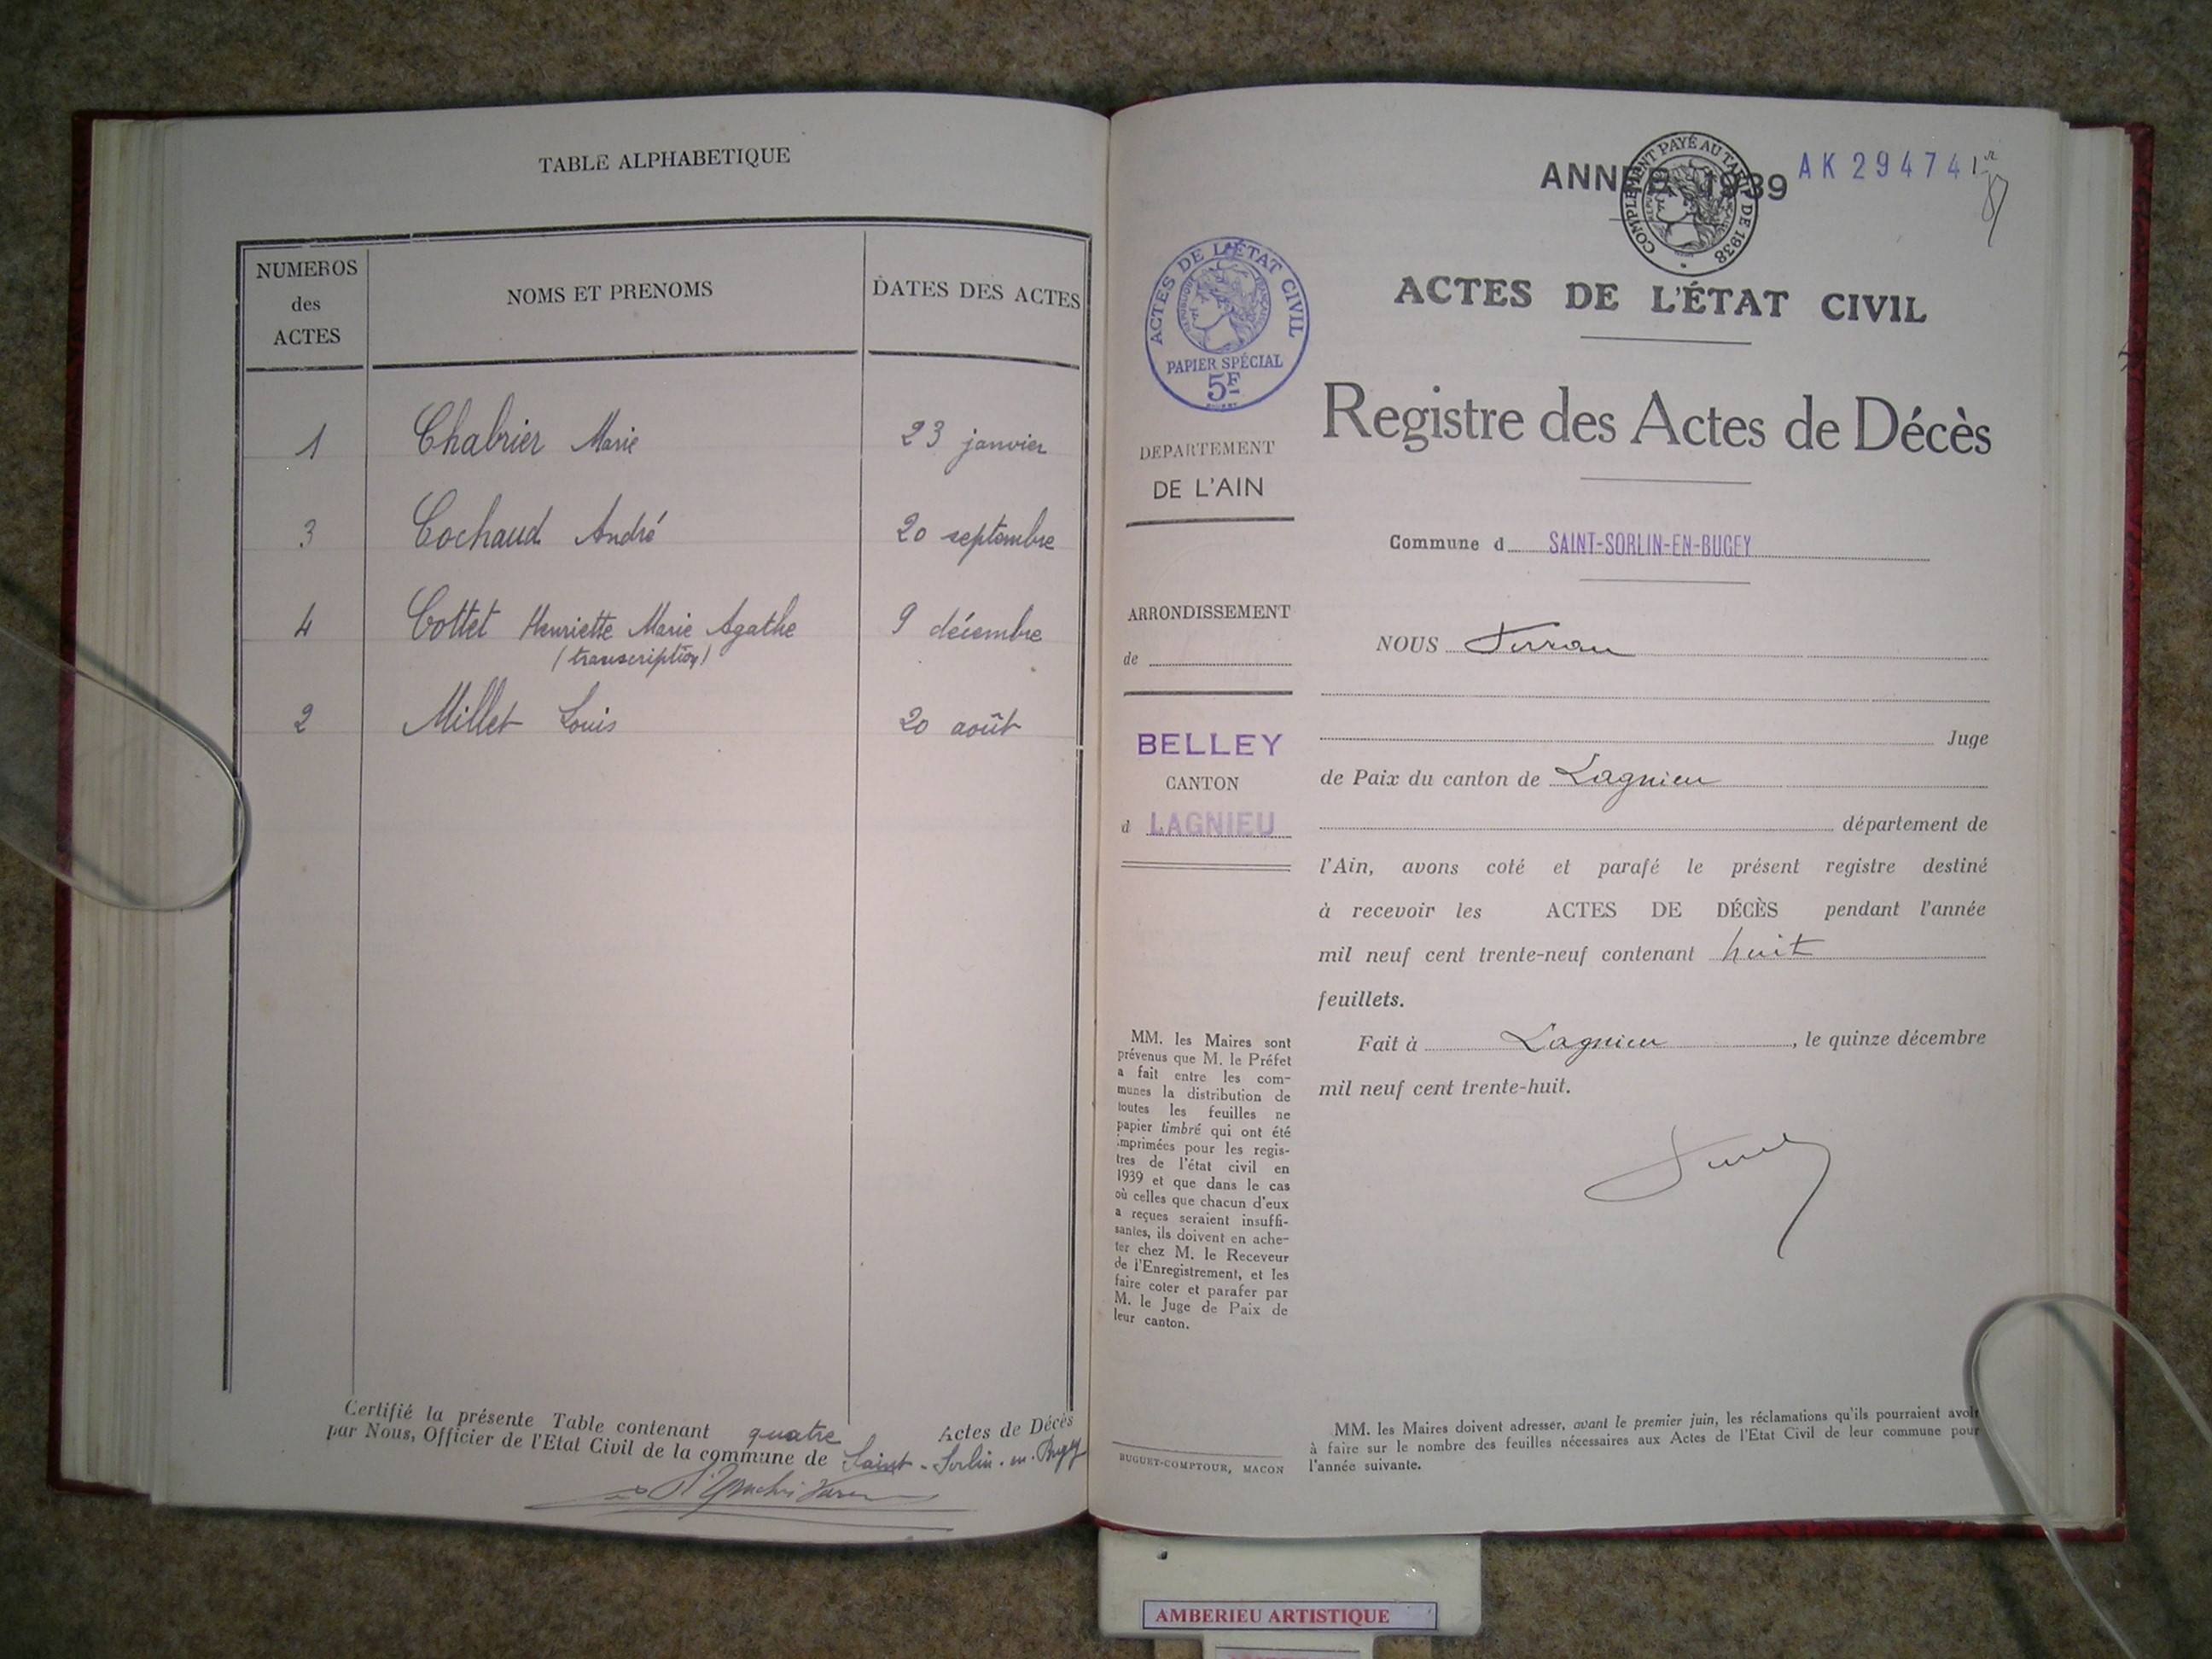 TABLE ALPHABETIQUE
NUMEROS des ACTES
NOMS ET PRENOMS
DATES DES ACTES
1 Chabrier Marie 23 janvier
3 Cochaud André 20 septembre
4 Cottet Henriette Marie Agathe 9 décembre
(transcription)
2 Millet Louis 20 août
Certifié la présente Table contenant quatre Actes de Décès
par Nous, Officier de l'Etat Civil de la commune de Saint-Sorlin-en-Bugey
ANNÉE 1939
COMPLÉMENT PAYÉ AU TARIF DE 1938
AK 29474
ACTES DE L'ÉTAT CIVIL
RÉPUBLIQUE FRANÇAISE
PAPIER SPÉCIAL
5F
ACTES DE L'ÉTAT CIVIL
Registre des Actes de Décès
DEPARTEMENT
DE L'AIN
Commune d SAINT-SORLIN-EN-BUGEY
ARRONDISSEMENT
de
BELLEY
CANTON
d LAGNIEU
NOUS
Juge
de Paix du canton de Lagnieu
département de
l'Ain, avons coté et parafé le présent registre destiné
à recevoir les ACTES DE DÉCÈS pendant l'année
mil neuf cent trente-neuf contenant huit
feuillets.
Fait à Lagnieu, le quinze décembre
mil neuf cent trente-huit.
MM. les Maires sont
prévenus que M. le Préfet
a fait entre les com-
munes la distribution de
toutes les feuilles ne
papier timbré qui ont été
imprimées pour les regis-
tres de l'état civil en
1939 et que dans le cas
où celles que chacun d'eux
a reçues seraient insuffi-
santes, ils doivent en ache-
ter chez M. le Receveur
de l'Enregistrement, et les
faire coter et parafer par
M. le Juge de Paix de
leur canton.
BUGUET-COMPTOUR, MACON
MM. les Maires doivent adresser, avant le premier juin, les réclamations qu'ils pourraient avoir
à faire sur le nombre des feuilles nécessaires aux Actes de l'Etat Civil de leur commune pour
l'année suivante.
AMBERIEU ARTISTIQUE